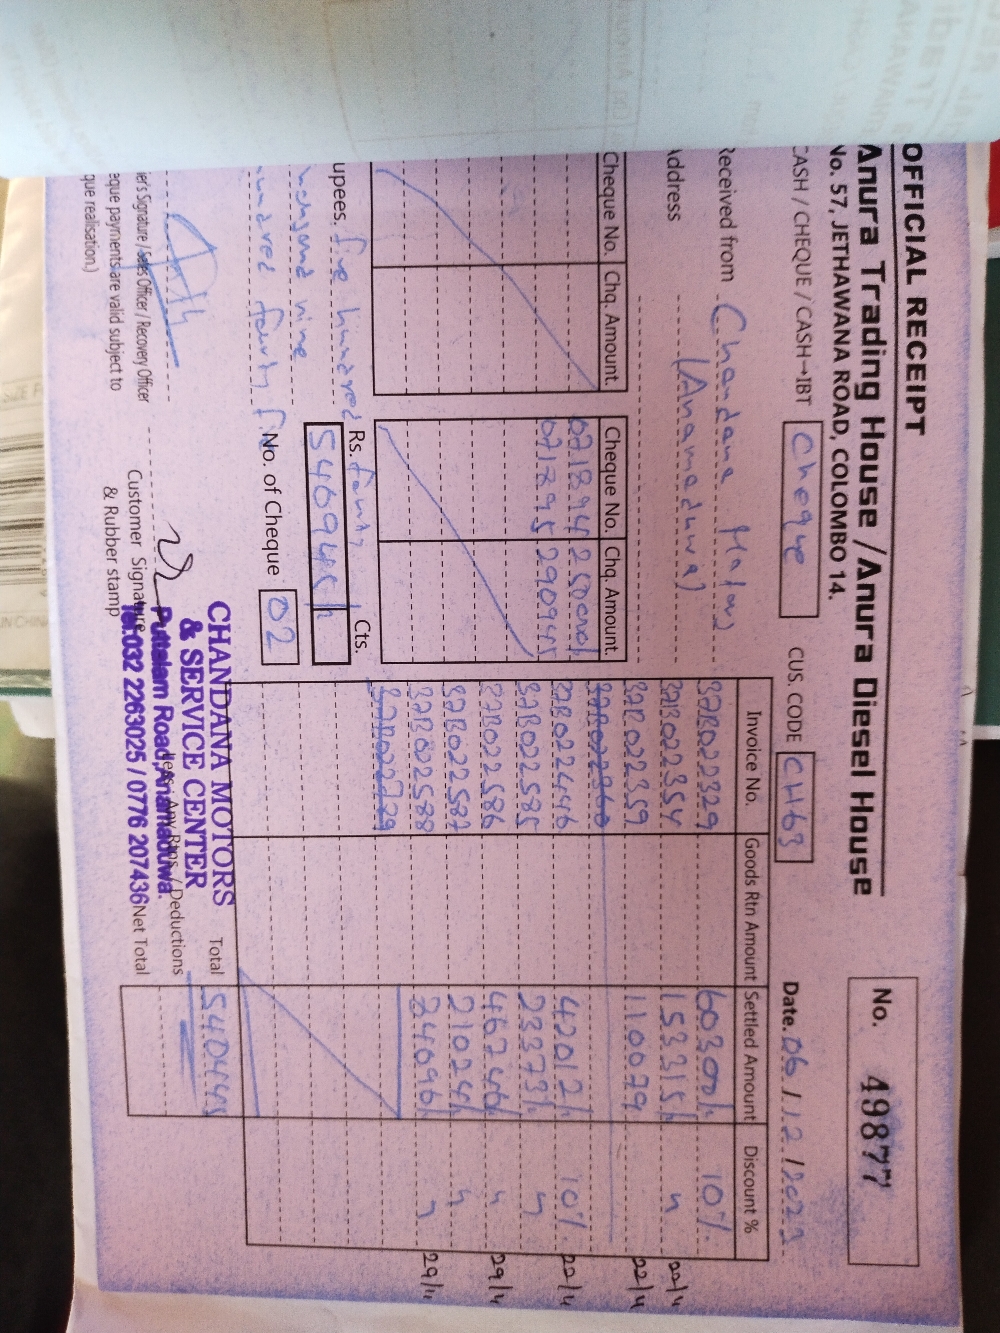 OFFICIAL RECEIPT
Anura Trading House / Anura Diesel House
No. 57, JETHAWANA ROAD, COLOMBO 14.
No. 49877
CASH / CHEQUE / CASH→IBT Cheque CUS. CODE CH63 Date. 06/12/202
Received from Chandana Motors
(Anamaduwa)
Address
Cheque No. Chq. Amount. Cheque No. Chq. Amount.
071894 250000/
071895 290945
Invoice No. Goods Rtn Amount Settled Amount Discount %
37B022329 60300/ 10%
37B022354 153315/ " 22/4
37B022359 110079 22/4
37B022360
37B022446 42012/ 10% 22/4
37B022585 23373/ "
37B022586 46746/ " 29/4
37B022587 21024/ "
37B022588 24096/ " 29/4
upees. five hundred fourty
nine
fourty
Rs. Cts.
540945/
No. of Cheque 02
Total 540445
Deductions
Net Total
er's Signature / Sales Officer / Recovery Officer
eque payments are valid subject to
que realisation.)
Customer Signature
& Rubber stamp
CHANDANA MOTORS
& SERVICE CENTER
Puttalam Road, Anamaduwa.
Tel:032 2263025 / 0776 207436